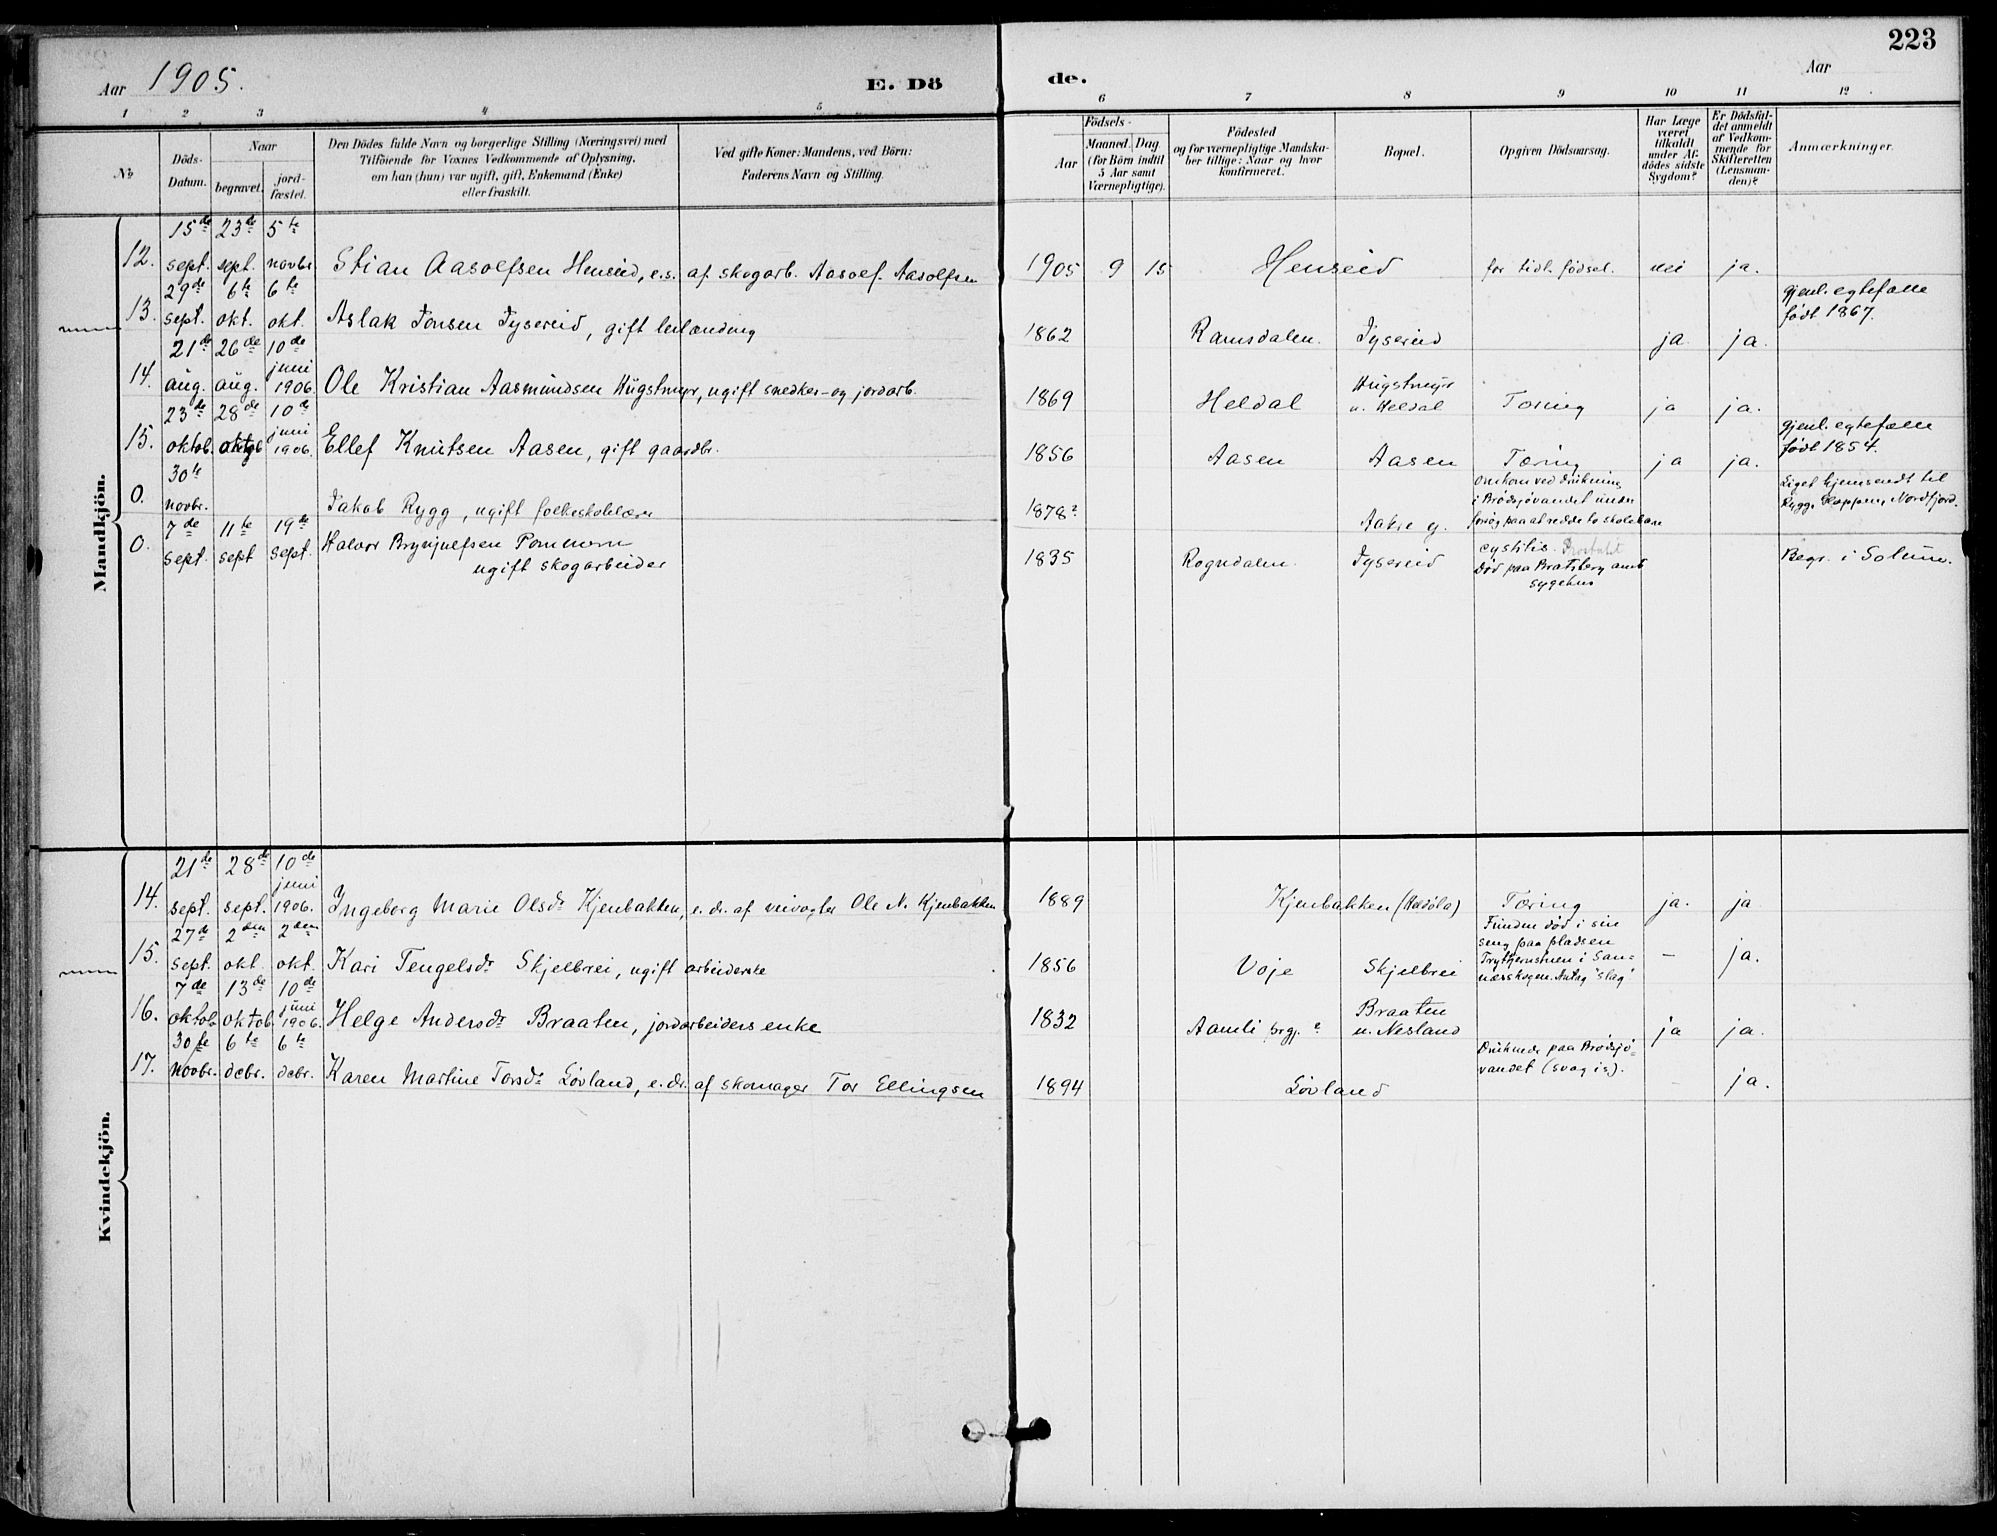 223
Aar 1905.
E. Dö
de.
Aar
1 2 3 4 5 6 7 8 9 10 11 12
№
Döds-Datum.
Naar
begravet.
jord-fæstet.
Den Dödes fulde Navn og borgerlige Stilling (Næringsvei) med
Tilföiende for Voxnes Vedkommende af Oplysning,
om han (hun) var ugift, gift, Enkemand (Enke)
eller fraskilt.
Ved gifte Koner: Mandens, ved Börn:
Faderens Navn og Stilling.
Födsels-
Aar
Maaned. Dag
(for Börn indtil
5 Aar samt
Værnepligtige).
Födested
og for værnepligtige Mandska-
ber tillige: Naar og hvor
konfirmeret.
Bopæl.
Opgiven Dödsaarsag.
Har Læge
været
tilkaldt
under Af-
dödes sidste
Sygdom?
Er Dödsfal-
det anmeldt
af Vedkom-
mende for
Skifteretten
(Lensman-
den)?
Anmærkninger.
Mandkjön.
12. 15de sept. 23de sept. 5te novbr. Stian Aasolfsen Henseid, e.s. af skogarb. Aasolf Aasolfsen 1905 9 15 Henseid for tidl. fødsel. nei ja.
13. 29de sept. 6te okt. 6te okt. Aslak Jonsen Fysereid, gift leilænding 1862 Ramsdalen. Fysereid ja ja. gjenl. egtefælle født 1867.
14. 21de aug. 26de aug. 10de juni 1906. Ole Kristian Aasmundsen Hugstmyr, ugift snedker- og jordarb. 1869 Heldal Hugstmyr u. Heldal Tæring ja ja.
15. 23de oktob. 28de oktob. 10de juni 1906. Ellef Knutsen Aasen, gift gaardbr. 1856 Aasen Aasen Tæring ja ja. gjenl. egtefælle født 1854.
0. 30te novbr. Jakob Rygg, ugift folkeskolelærer 1878? Aakre g. Omkom ved drukning i Brødsjøvandet under forsøg paa at redde to skolebarn Liget hjemsendt til Rygg, Gloppen, Nordfjord.
0. 7de sept. 11te sept 19de sept. Halvor Brynjulfsen Pommern ugift skogarbeider 1835 Rogndalen. Fysereid cystitis. Prostatit Død paa Bratsberg amts sygehus Begr. i Solum.
Kvindekjön.
14. 21de sept. 28de sept. 10de juni 1906. Ingeborg Marie Olsdr Kjenbakken, e. dr. af veivogter Ole N. Kjenbakken 1889 Kjenbakken (Heldøla) Tæring ja. ja
15. 27de sept. 2den okt. 2den okt. Kari Tengelsdr Skjelbrei, ugift arbeiderske 1856 Voje Skjelbrei Funden død i sin seng paa pladsen i San- - ja.
16. 7de oktob. 13de oktob. 10de juni 1906. Helge Andersdr Braaten, jordarbeiders enke 1832 Aamli prgj. ? Braaten u. Nesland ja ja.
17. 30te novbr. 6te debr. 6te debr. Karen Martine Torsdr Løvland, e. dr. af skomager Tor Ellingsen 1894 Løvland Druknede paa Brødsjø- vandet (svag is). - ja.